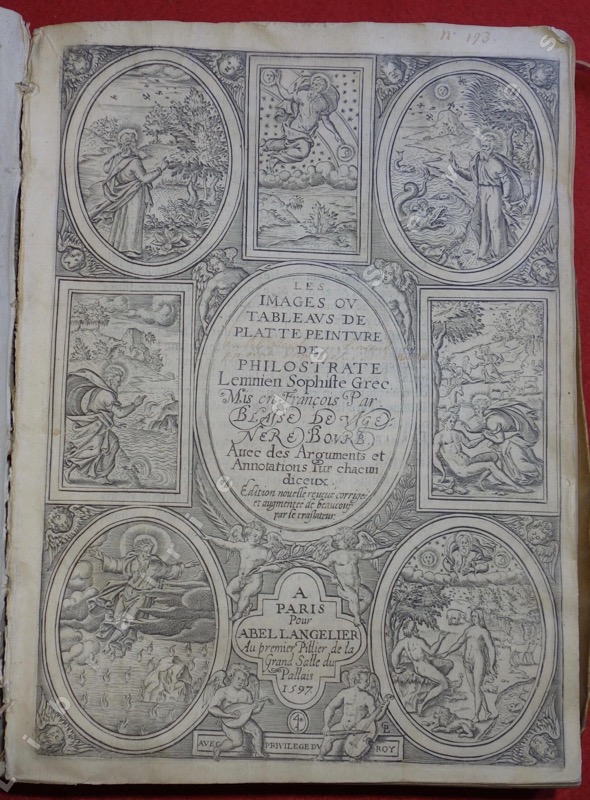 n° 193.
LES
IMAGES OV
TABLEAVS DE
PLATTE PEINTVRE
DE
PHILOSTRATE
Lemnien Sophiste Grec
Mis en François Par
BLAISE DE VIGE-
NERE BOVRB.
Auec des Arguments et
Annotations sur chacun
diceux.
Edition nouelle reueue corrigee
et augmentee de beaucoup
par le traslateur.
A
PARIS
Pour
ABEL LANGELIER
Au premier Pillier de la
Grand Salle du
Pallais
1597
AVEC PRIVILEGE DV ROY